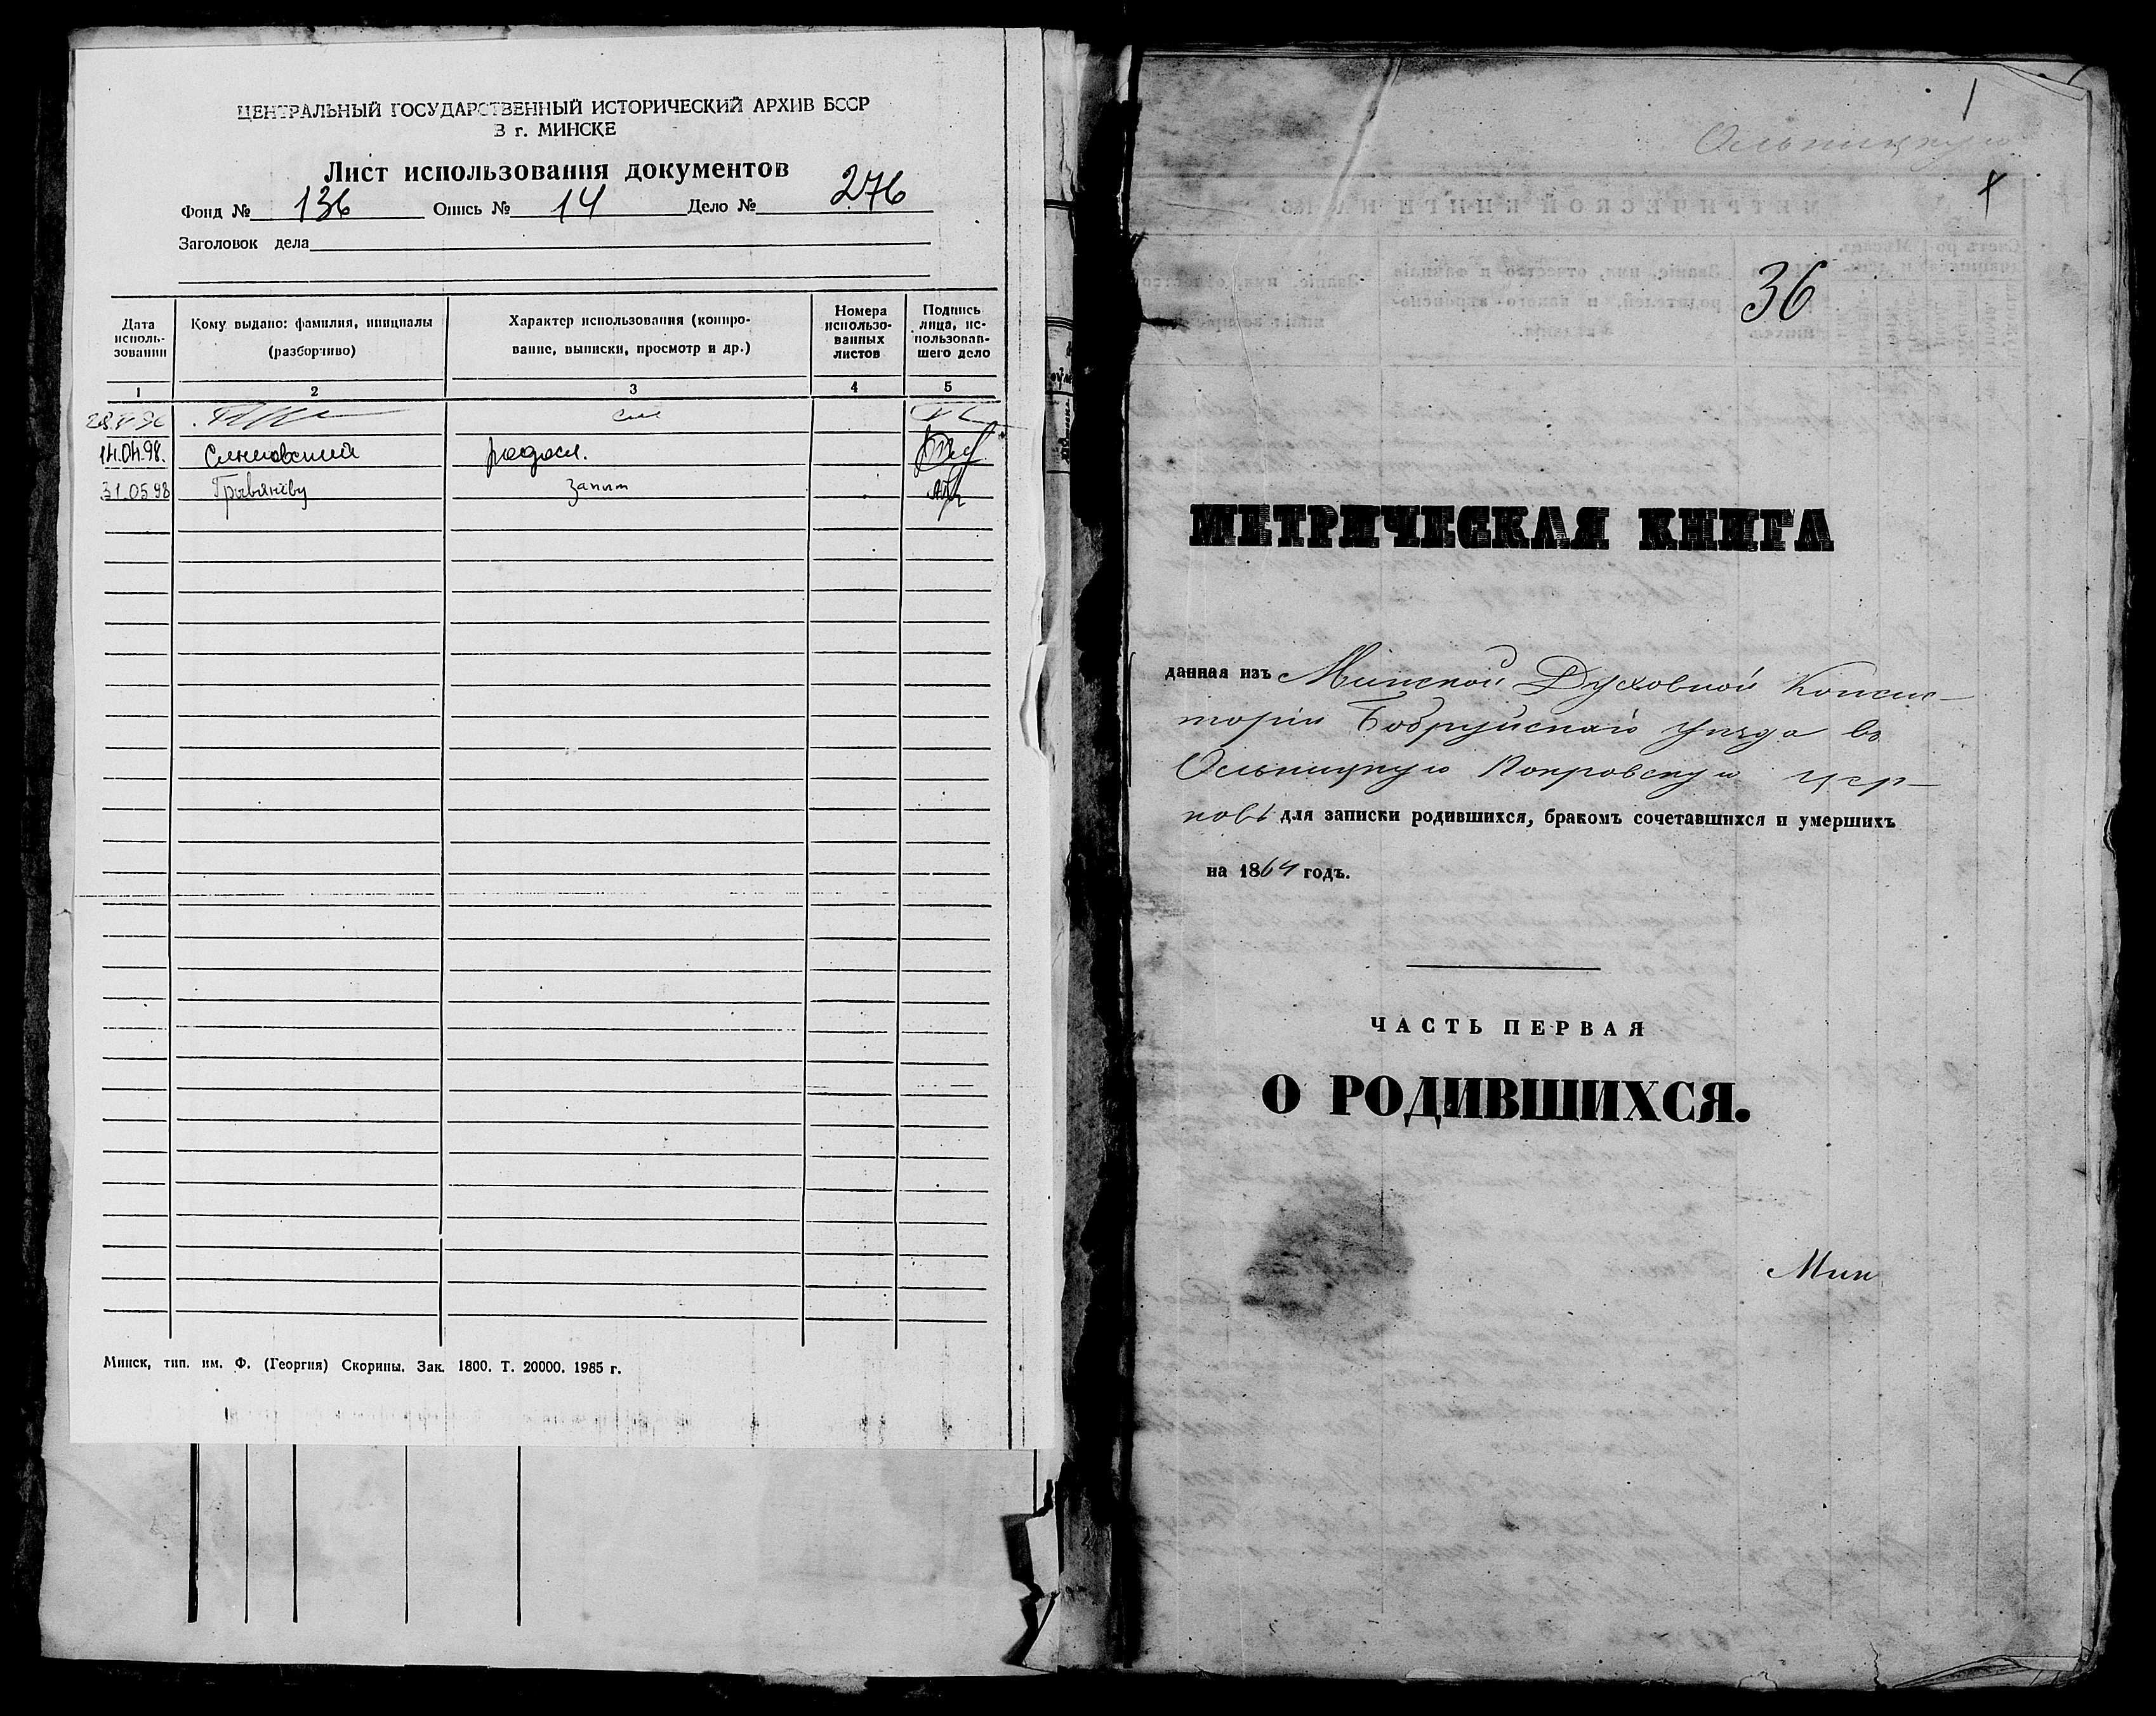 ЦЕНТРАЛЬНЫЙ ГОСУДАРСТВЕННЫЙ ИСТОРИЧЕСКИЙ АРХИВ БССР
В г. МИНСКЕ
Лист использования документов
Фонд № 136 Опись № 14 Дело № 276
Заголовок дела
Дата исполь- зования
Кому выдано: фамилия, инициалы (разборчиво)
Характер использования (копиро- вание, выписки, просмотр и др.)
Номера использо- ванных листов
Подпись лица, ис- пользовав- шего дело
1 2 3 4 5
14.04.98. родосл.
31.05.98
Минск, тип. им. Ф. (Георгия) Скорины. Зак. 1800. Т. 20000. 1985 г.
1
Ольницкую
36
МЕТРИЧЕСКАЯ КНИГА
данная изъ Минской Духовной Консис-
торіи Бобруйскаго уѣзда въ
Ольницкую Покровскую цер-
ковь для записки родившихся, бракомъ сочетавшихся и умершихъ
на 1864 годъ.
ЧАСТЬ ПЕРВАЯ
О РОДИВШИХСЯ.
Мин